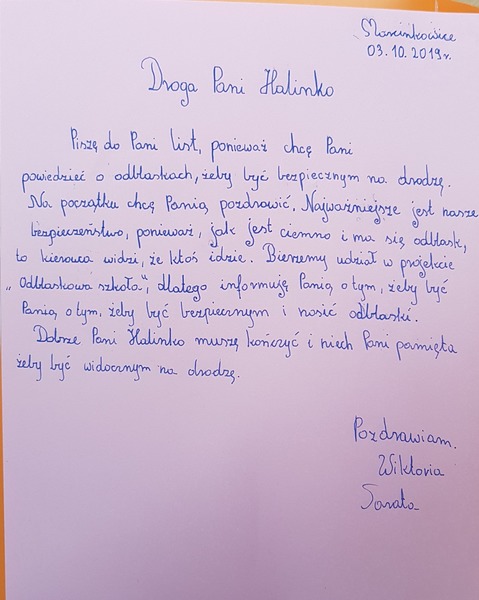 Marcinkowice
03.10.2019r.
Droga Pani Halinko
Piszę do Pani list, ponieważ chcę Pani
powiedzieć o odblaskach, żeby być bezpiecznym na drodzę.
Na początku chcę Panią pozdrowić. Najważniejsze jest nasze
bezpieczeństwo, ponieważ, jak jest ciemno i ma się odblask,
to kierowca widzi, że ktoś idzie. Bierzemy udział w projekcie
„Odblaskowa szkoła", dlatego informuję Panią o tym, żeby być
Panią o tym, żeby być bezpiecznym i nosić odblaski.
Dobrze Pani Halinko muszę kończyć i niech Pani pamięta
żeby być widocznym na drodzę.
Pozdrawiam.
Wiktoria
Sarata